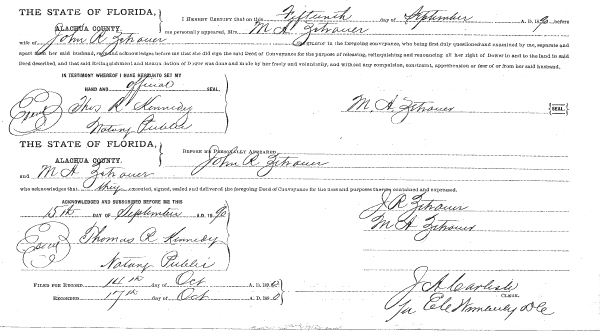 THE STATE OF FLORIDA,
ALACHUA COUNTY.
I HEREBY CERTIFY that on this Fifteenth day of September A. D. 1890, before
me personally appeared, Mrs. M. A. Zetrouer
wife of John R Zetrouer the grantor in the foregoing conveyance, who being first duly questioned and examined by me, separate and
apart from her said husband, did acknowledge before me that she did sign the said Deed of Conveyance for the purpose of releasing, relinquishing and renouncing all her right of Dower in and to the land in said
Deed described, and that said Relinquishment and Renunciation of Dower was done and made by her freely and voluntarily, and without any compulsion, constraint, apprehension or fear of or from her said husband.
IN TESTIMONY WHEREOF I HAVE HEREUNTO SET MY
HAND AND official SEAL.
Thos R. Kennedy
Notary Public
M. A. Zetrouer [SEAL.]
THE STATE OF FLORIDA,
ALACHUA COUNTY.
BEFORE ME PERSONALLY APPEARED John R. Zetrouer
and M A. Zetrouer
who acknowledges that they executed, signed, sealed and delivered the foregoing Deed of Conveyance for the uses and purposes therein contained and expressed.
ACKNOWLEDGED AND SUBSCRIBED BEFORE ME THIS
15th DAY OF September A. D. 1890
J R Zetrouer
M A Zetrouer
Thomas R Kennedy
Notary Public
FILED FOR RECORD 14th day of Oct A. D. 1890
RECORDED 17th day of Oct A. D. 1890
J A Carlisle
CLERK.